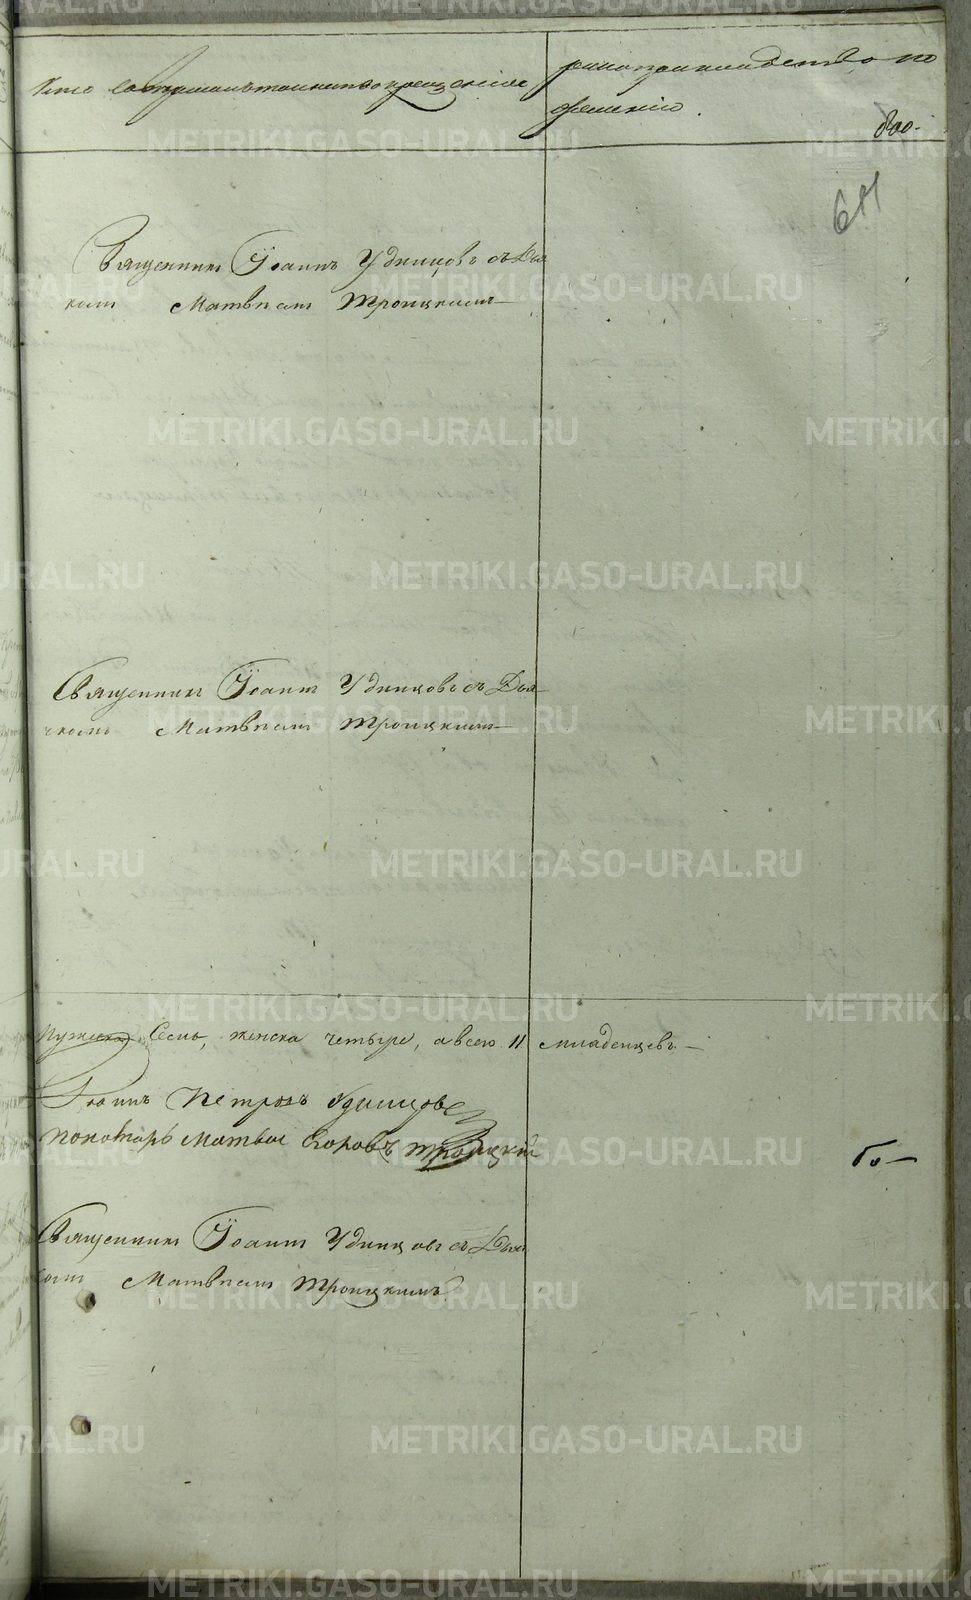 Кто совершалъ таинство крещенiя
рукоприкладство по
желанiю.
800.
611
Священникъ Iоаннъ Удинцовъ съ Дья
комъ Матвѣемъ Троицкимъ
Священникъ Iоаннъ Удинцовъ съ Дья
чкомъ Матвѣемъ Троицкимъ
Мужеска семь, женска четыре, а всего 11 младенцевъ
Iоаннъ Петровъ Удинцовъ
Пономарь Матвей Троицкiй
Священникъ Iоаннъ Удинцовъ съ Дьяч
комъ Матвѣемъ Троицкимъ
METRIKI.GASO-URAL.RU